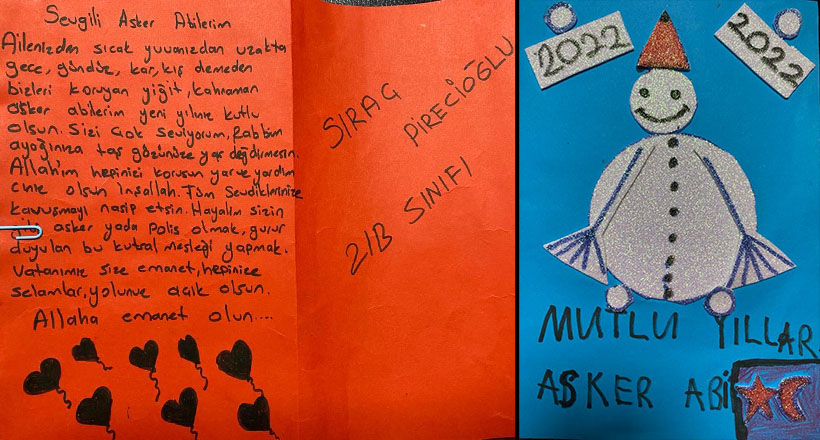 Sevgili Asker Abilerim
Ailenizden sıcak yuvanızdan uzakta
gece, gündüz, kar, kış demeden
bizleri koruyan yiğit, kahraman
asker abilerim yeni yılınız kutlu
olsun. Sizi çok seviyorum, Rabbim
ayağınıza taş gözünüze yaş değdirmesin.
Allah'ım hepinizi korusun yar ve yardım
cınız olsun İnşallah. Tüm Sevdiklerinize
kavuşmayı nasip etsin. Hayalim sizin
gibi asker yada polis olmak, gurur
duyulan bu kutsal mesleği yapmak.
Vatanımız size emanet, hepinize
selamlar, yolunuz açık olsun.
Allaha emanet olun....
SIRAÇ
PİRECİOĞLU
2/B SINIFI
2022
2022
MUTLU YILLAR
ASKER ABİ